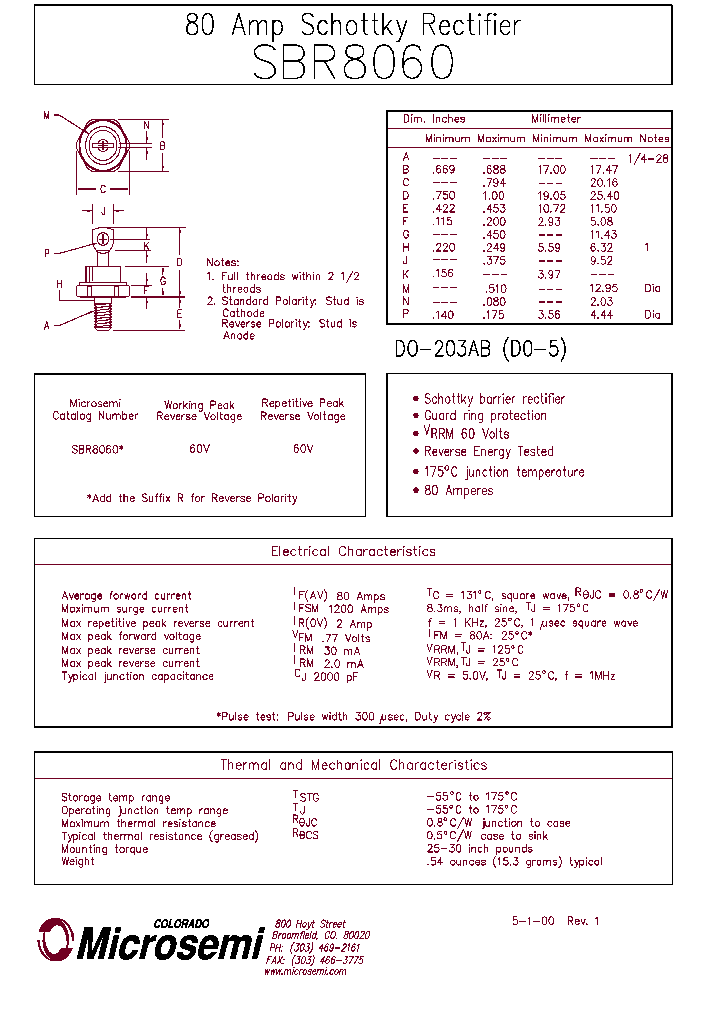 80 Amp Schottky Rectifier
SBR8060
M
N
B
C
J
P
K
D
G
H
F
E
A
Notes:
1. Full threads within 2 1/2
threads
2. Standard Polarity: Stud is
Cathode
Reverse Polarity: Stud is
Anode
Dim. Inches Millimeter
Minimum Maximum Minimum Maximum Notes
A --- --- --- --- 1/4-28
B .669 .688 17.00 17.47
C --- .794 --- 20.16
D .750 1.00 19.05 25.40
E .422 .453 10.72 11.50
F .115 .200 2.93 5.08
G --- .450 --- 11.43
H .220 .249 5.59 6.32 1
J --- .375 --- 9.52
K .156 --- 3.97 ---
M --- .510 --- 12.95 Dia
N --- .080 --- 2.03
P .140 .175 3.56 4.44 Dia
DO-203AB (DO-5)
Microsemi Catalog Number
Working Peak Reverse Voltage
Repetitive Peak Reverse Voltage
SBR8060* 60V 60V
*Add the Suffix R for Reverse Polarity
• Schottky barrier rectifier
• Guard ring protection
• VRRM 60 Volts
• Reverse Energy Tested
• 175°C junction temperature
• 80 Amperes
Electrical Characteristics
Average forward current IF(AV) 80 Amps TC = 131°C, square wave, RθJC = 0.8°C/W
Maximum surge current IFSM 1200 Amps 8.3ms, half sine, TJ = 175°C
Max repetitive peak reverse current IR(OV) 2 Amp f = 1 KHz, 25°C, 1 μsec square wave
Max peak forward voltage VFM .77 Volts IFM = 80A: 25°C*
Max peak reverse current IRM 30 mA VRRM, TJ = 125°C
Max peak reverse current IRM 2.0 mA VRRM, TJ = 25°C
Typical junction capacitance CJ 2000 pF VR = 5.0V, TJ = 25°C, f = 1MHz
*Pulse test: Pulse width 300 μsec, Duty cycle 2%
Thermal and Mechanical Characteristics
Storage temp range TSTG -55°C to 175°C
Operating junction temp range TJ -55°C to 175°C
Maximum thermal resistance RθJC 0.8°C/W junction to case
Typical thermal resistance (greased) RθCS 0.5°C/W case to sink
Mounting torque 25-30 inch pounds
Weight .54 ounces (15.3 grams) typical
COLORADO
Microsemi
800 Hoyt Street
Broomfield, CO. 80020
PH: (303) 469-2161
FAX: (303) 466-3775
www.microsemi.com
5-1-00 Rev. 1